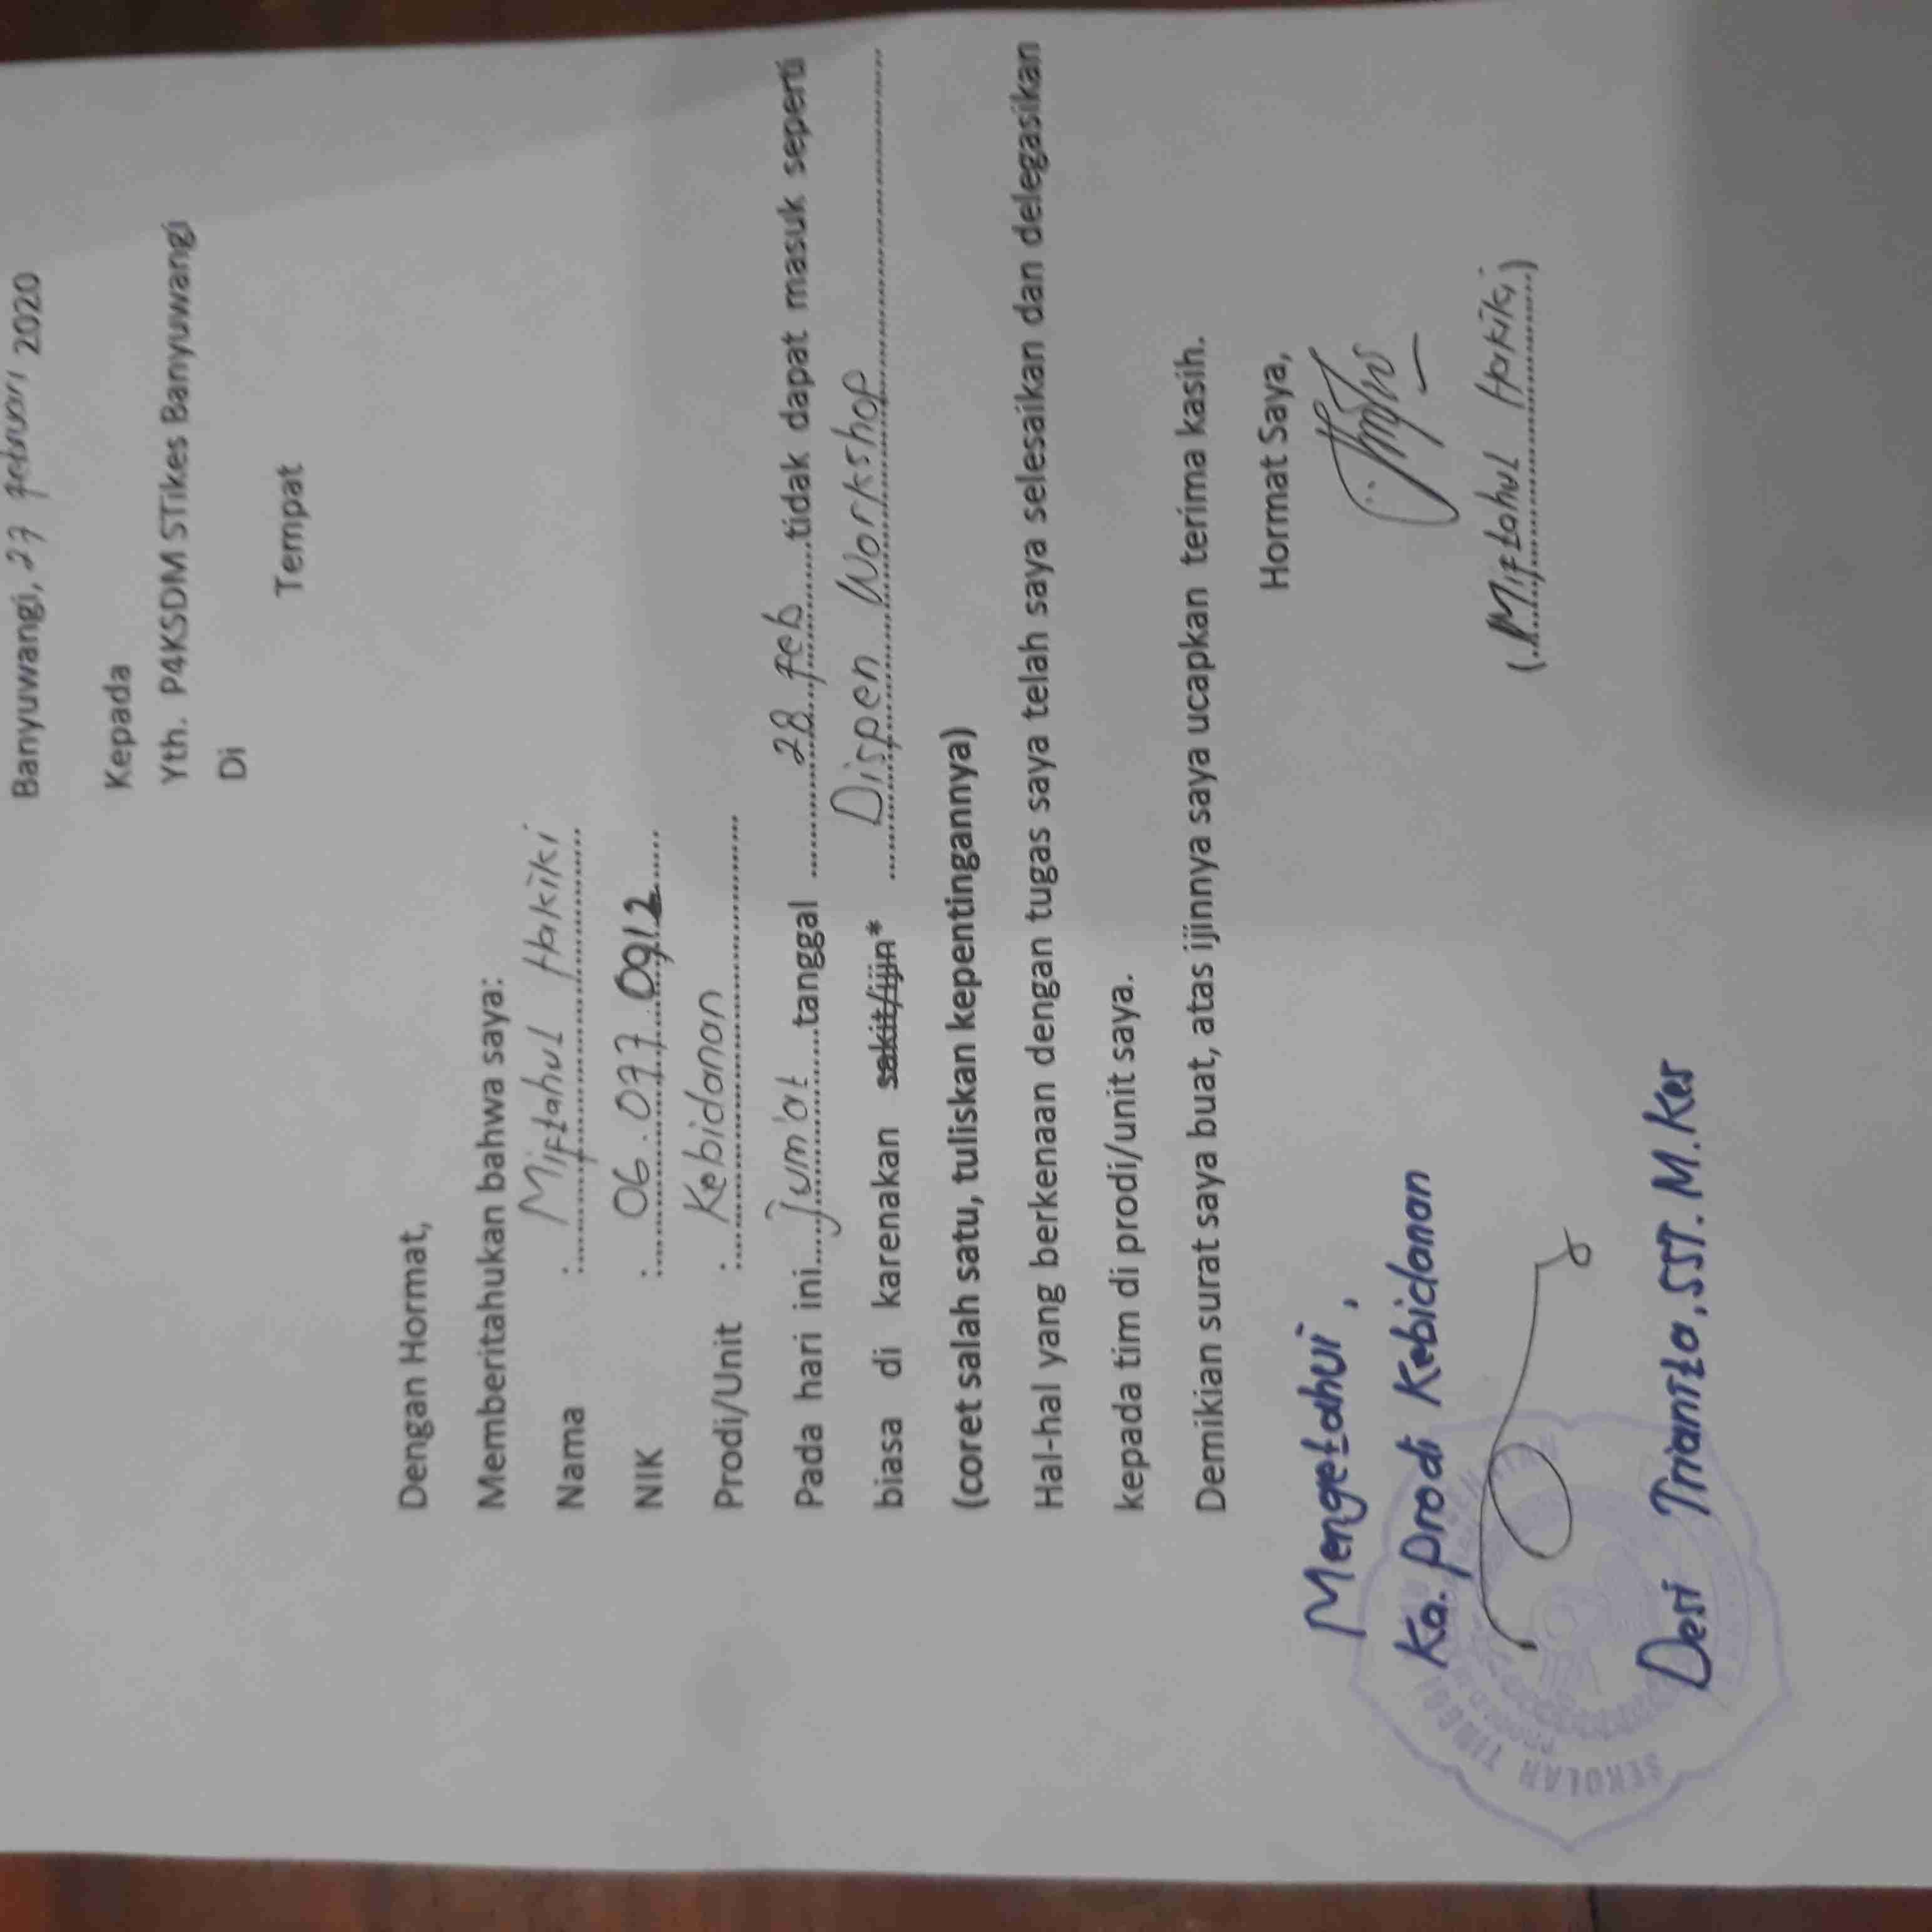 Banyuwangi, 27 februari 2020
Kepada
Yth. P4KSDM STikes Banyuwangi
Di
Tempat
Dengan Hormat,
Memberitahukan bahwa saya:
Nama : Miftahul Hakiki
NIK : 06.077.0912
Prodi/Unit : Kebidanan
Pada hari ini....Jum'at....tanggal ....28 feb....tidak dapat masuk seperti
biasa di karenakan sakit/ijin* ....Dispen Workshop....
(coret salah satu, tuliskan kepentingannya)
Hal-hal yang berkenaan dengan tugas saya telah saya selesaikan dan delegasikan
kepada tim di prodi/unit saya.
Demikian surat saya buat, atas ijinnya saya ucapkan terima kasih.
Hormat Saya,
(Miftahul Hakiki)
Mengetahui,
Ka. Prodi Kebidanan
SEKOLAH TINGGI
Desi Trianita, SST. M.Kes